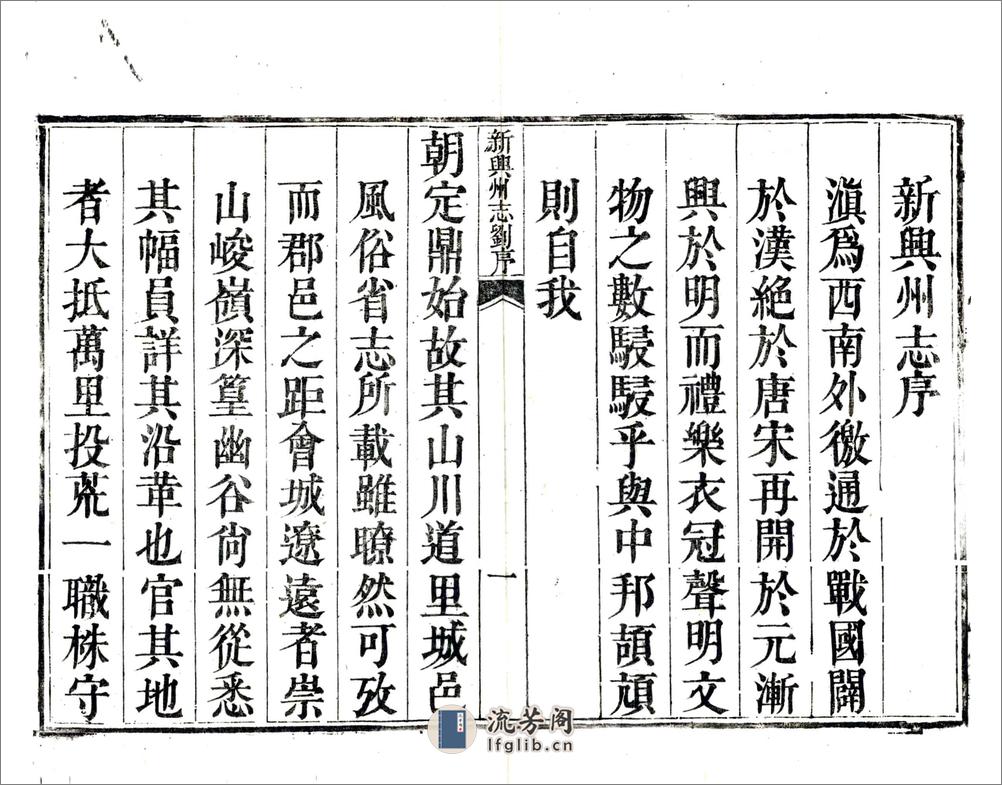 新興州志序
滇爲西南外徼通於戰國闢
於漢絕於唐宋再開於元漸
興於明而禮樂衣冠聲明文
物之數駸駸乎與中邦頡頏
則自我
新興州志劉序
一
朝定鼎始故其山川道里城邑
風俗省志所載雖瞭然可攷
而郡邑之距會城遼遠者崇
山峻嶺深篁幽谷尙無從悉
其幅員詳其沿革也官其地
者大抵萬里投荒一職株守
流芳阁
lfglib.cn